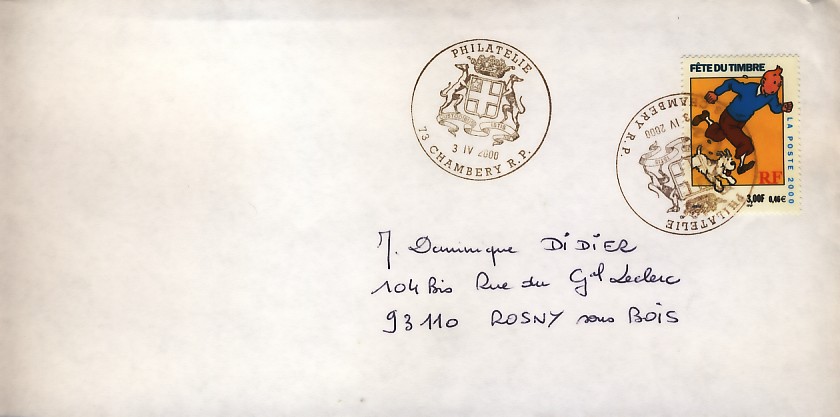 PHILATELIE
3 IV 2000
73 CHAMBERY R.P.
FÊTE DU TIMBRE
LA POSTE 2000
RF
3,00F 0,46€
CHAMBERY R.P.
3 IV 2000
PHILATELIE
M. Dominique DIDIER
104 Bis Rue du Gal Leclerc
93110 ROSNY sous BOIS